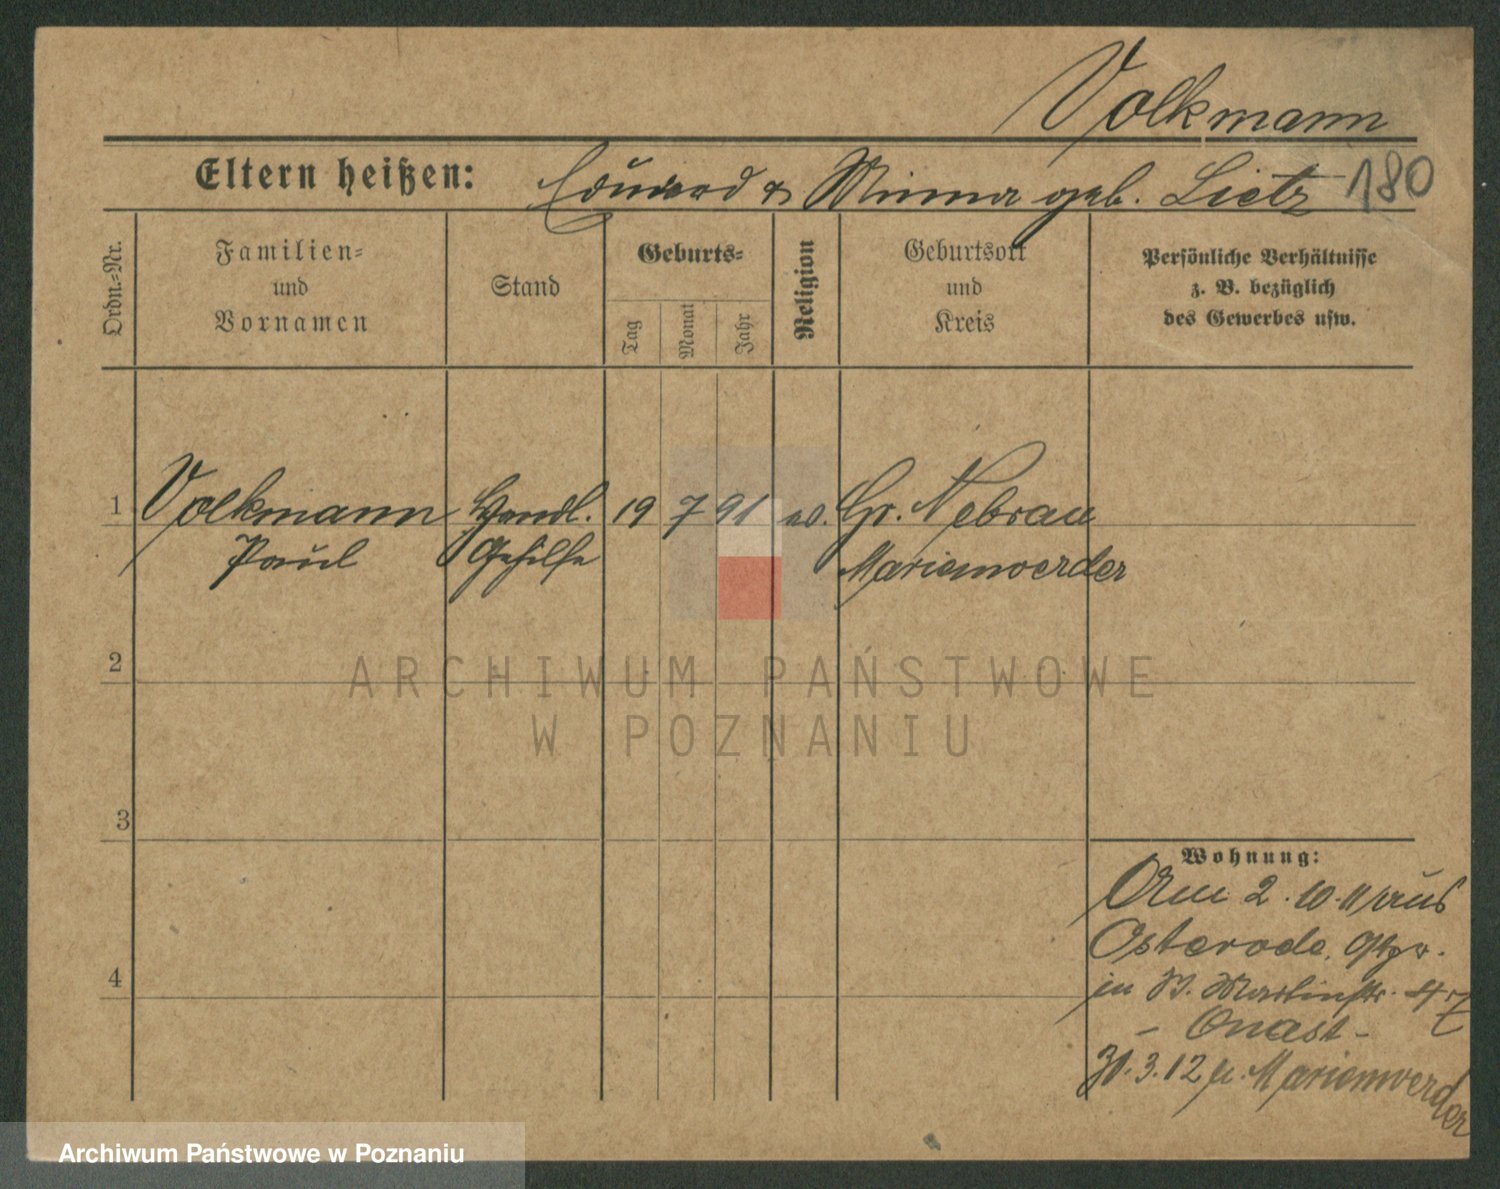 Volkmann
Eltern heißen: Eduard & Minna geb. Lietz 180
Ordn.-Nr.
Familien-
und
Vornamen
Stand
Geburts-
Tag
Monat
Jahr
Religion
Geburtsort
und
Kreis
Persönliche Verhältnisse
z. B. bezüglich
des Gewerbes usw.
1 Volkmann Handl. 19 7 91 ev. Gr. Nebrau
Paul Gehilfe Marienwerder
2
ARCHIWUM PAŃSTWOWE
W POZNANIU
3
Wohnung:
Am 2.10.11 aus
Osterode, Ostpr.
4
in St. Martinstr. 47
- Onast -
30.3.12 n. Marienwerder
Archiwum Państwowe w Poznaniu